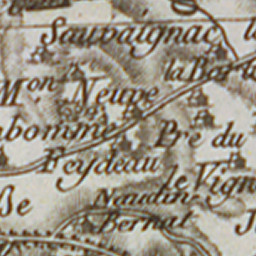 Sauvaignac
la Bar
Mon Neuve
bomme
Pré du
Feydeau
le Vign
Naudin-
Bernat